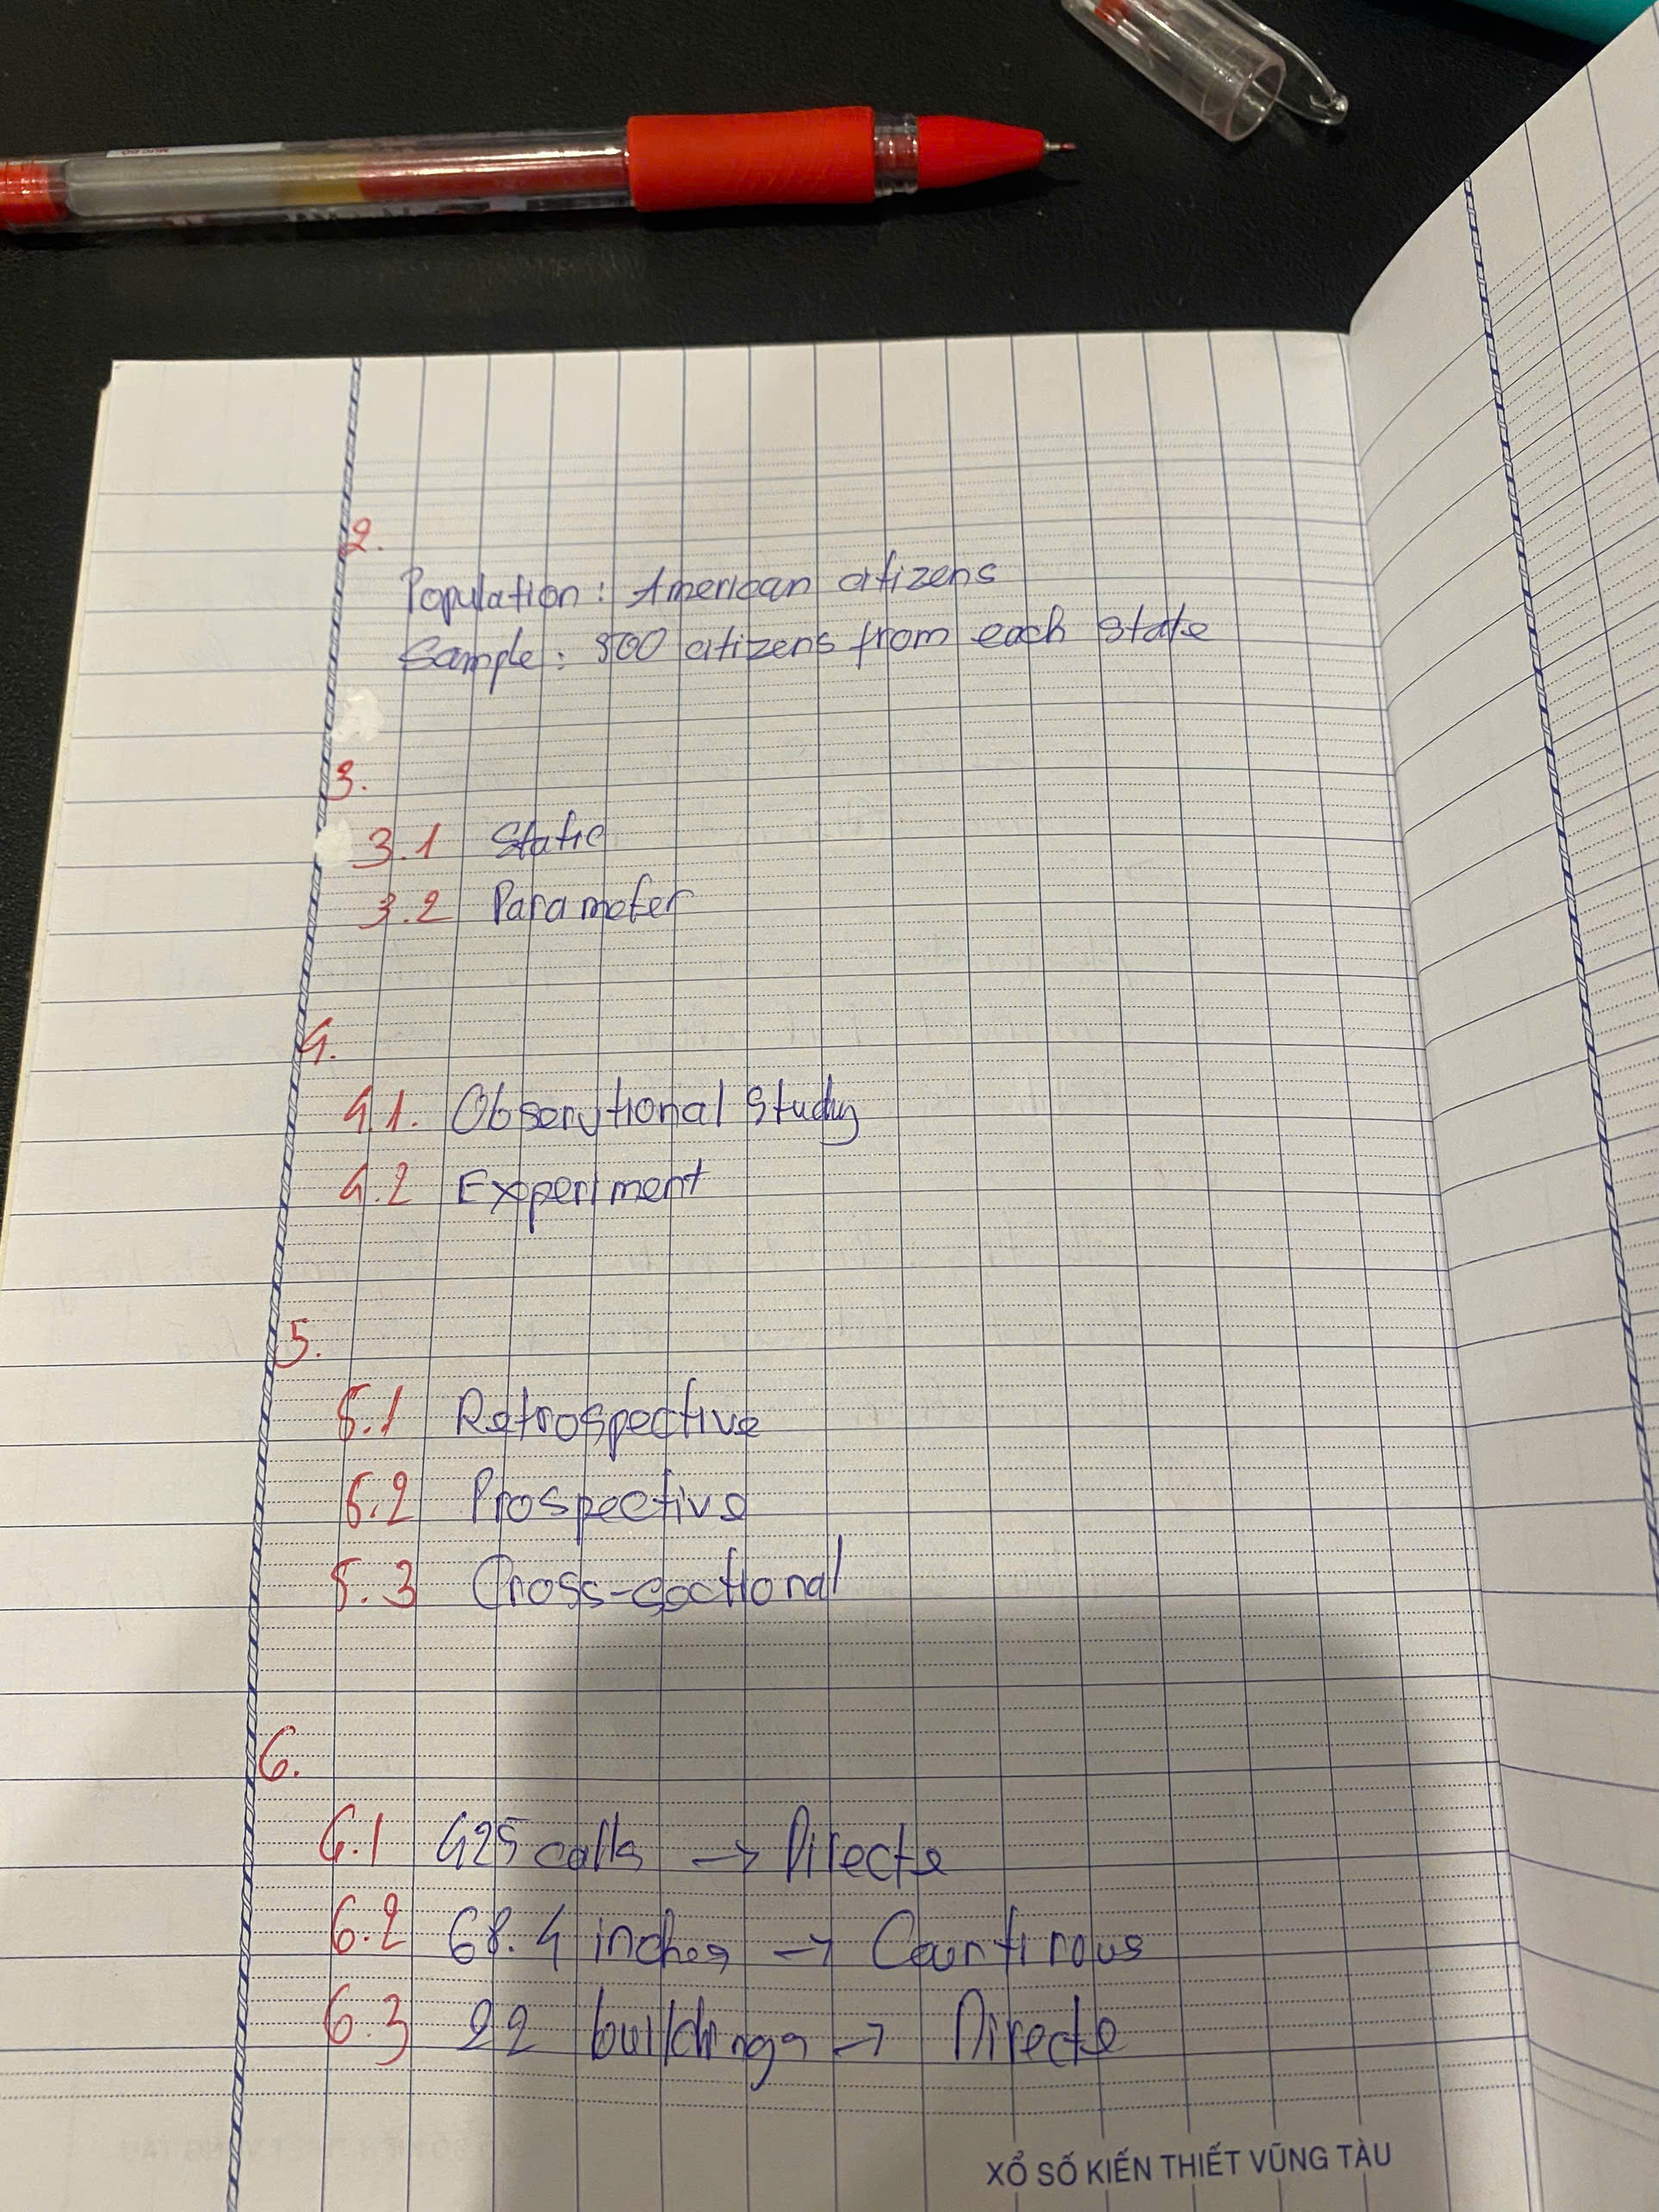 2.
Population: American citizens
Sample: 500 citizens from each state
3.
3.1 Static
3.2 Parameter
4.
4.1. Observtional study
4.2 Experiment
5.
5.1 Retrospective
5.2 Prospective
5.3 Cross-sectional
6.
6.1 425 calls → Directe
6.2 68.4 inches → Countinous
6.3 22 buildings → Directe
XỔ SỐ KIẾN THIẾT VŨNG TÀU